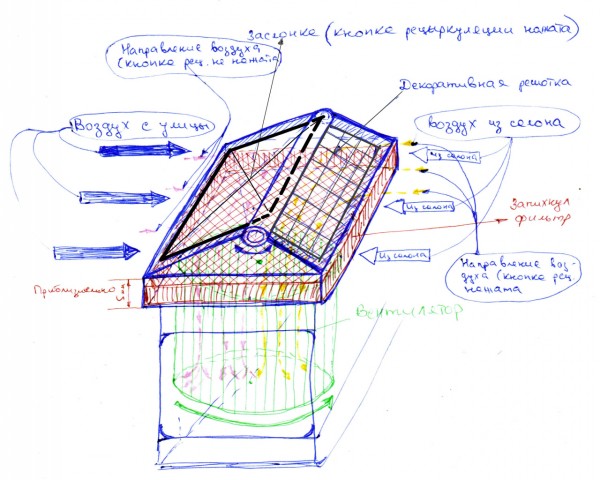 Заслонке (кнопке рецыркулеции нажата)
Направление воздуха
(кнопке рец. не нажата
Декоративная решотка
Воздух с улицы
воздух из солона
из солона
Из солона
Из солона
Запихнул
фильтр
Направление воз-
духа (кнопке рец
нажата
Приблизительно
Вентилятор